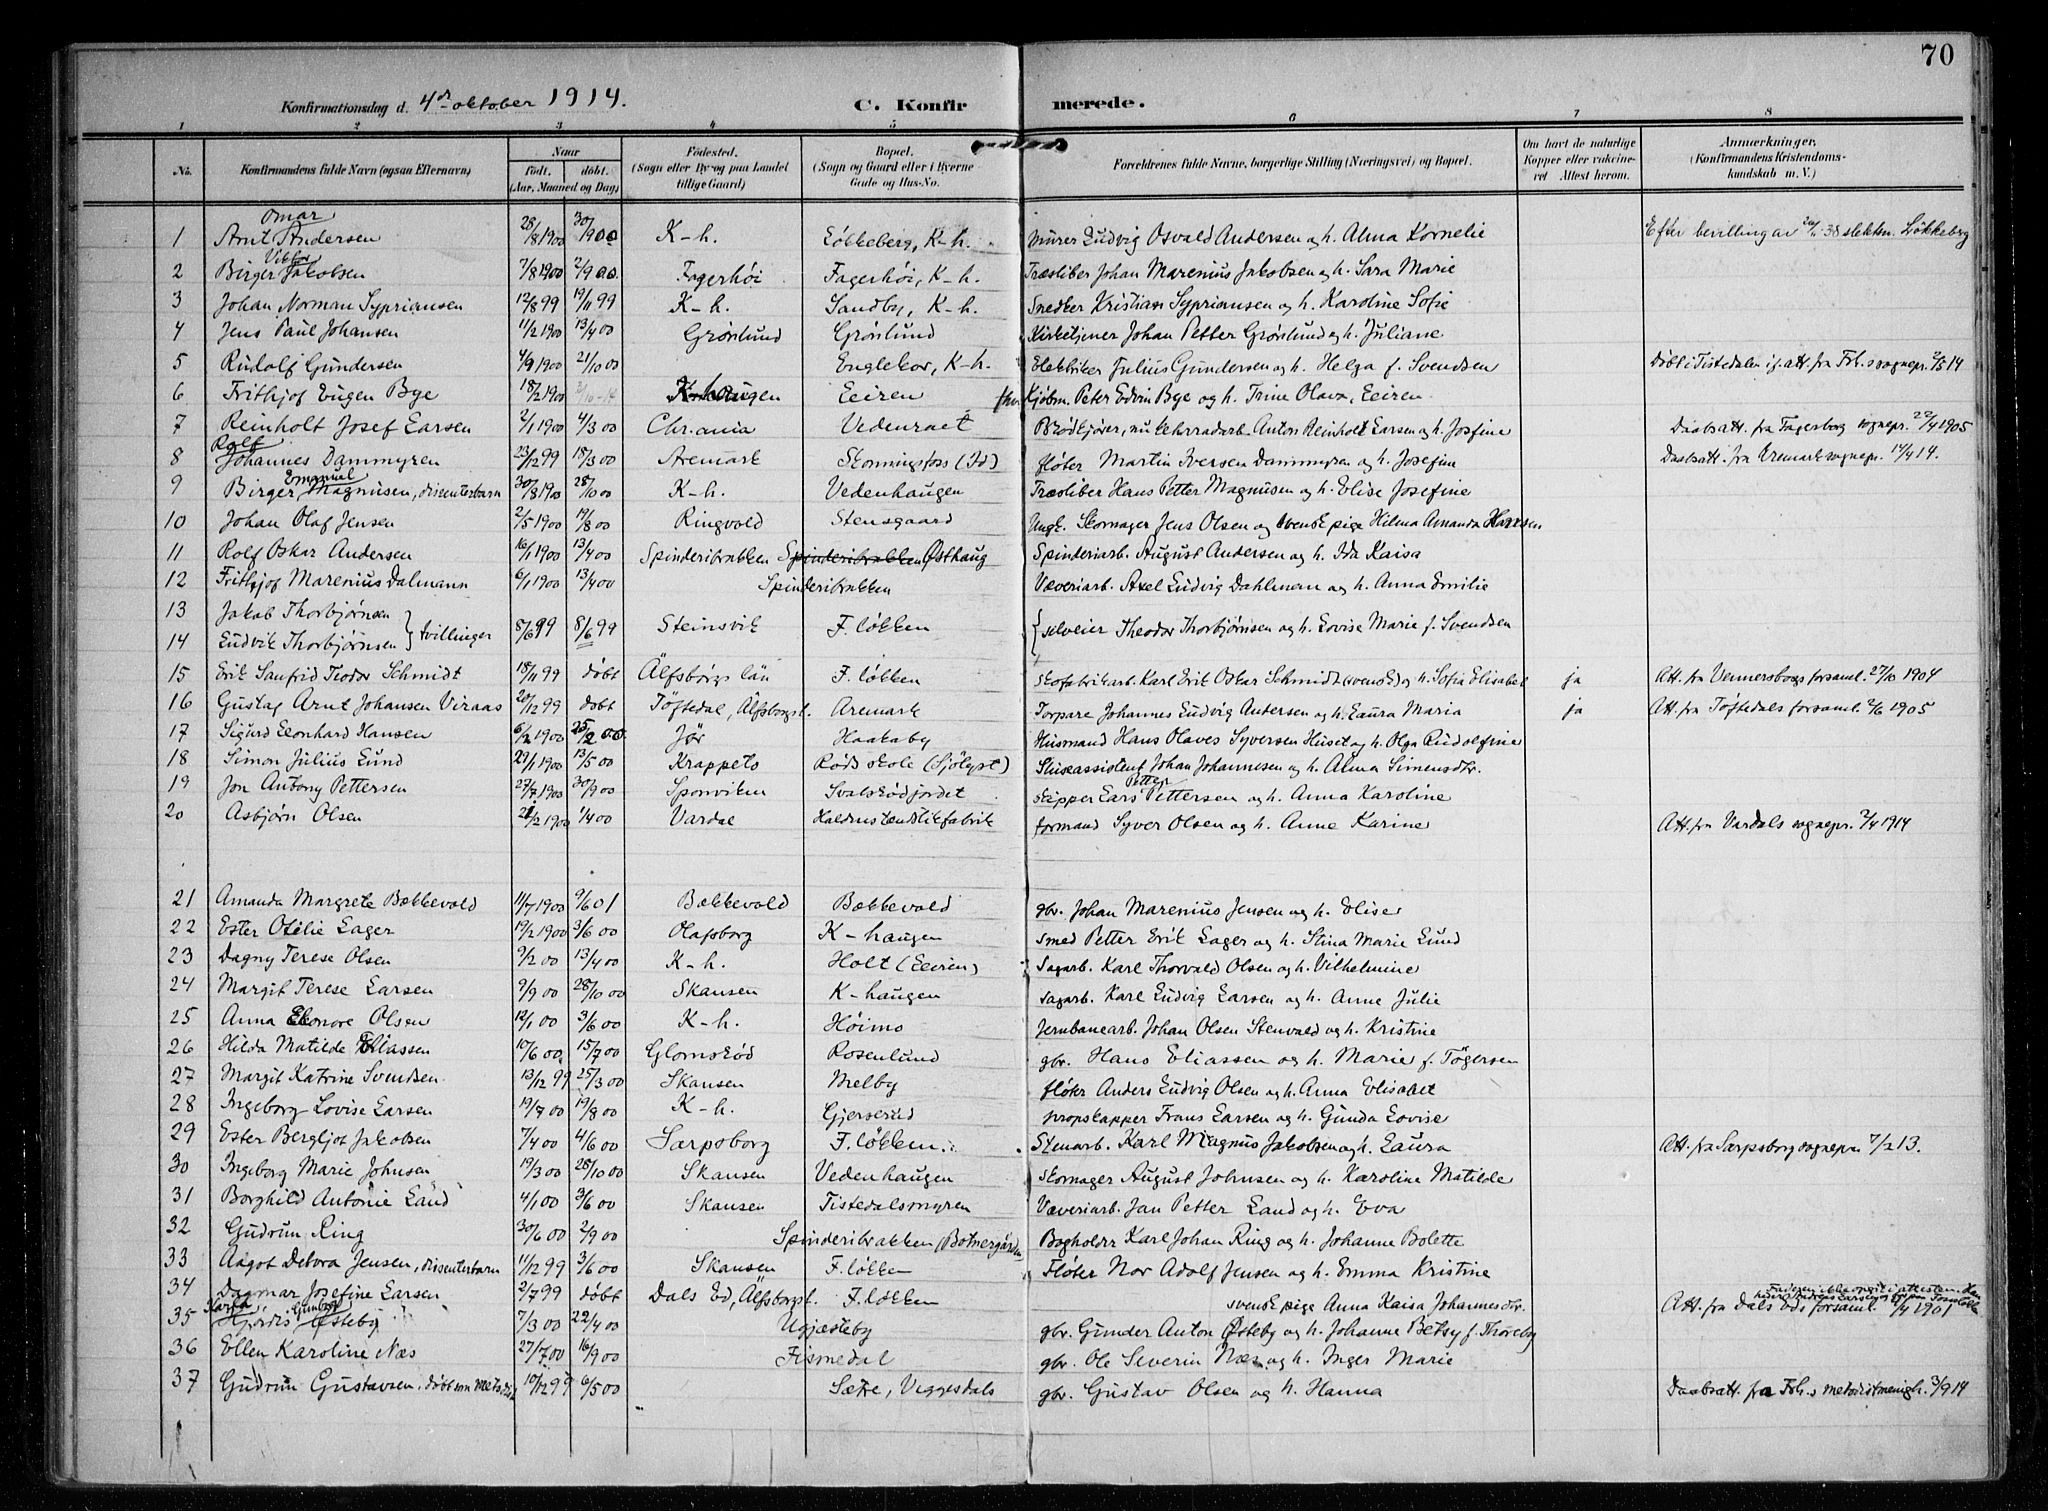 70
Konfirmationsdag d. 4de oktober 1914. C. Konfirmerede.
1 2 3 4 5 6 7 8
No. Konfirmandens fulde Navn (ogsaa Efternavn) Naar født. døbt. (Aar, Maaned og Dag) Fødested. (Sogn eller By og paa Landet tillige Gaard) Bopæl. (Sogn og Gaard eller i Byerne Gade og Hus-No. Forældrenes fulde Navne, borgerlige Stilling (Næringsvei) og Bopæl. Om havt de naturlige Kopper eller vaccineret Attest herom. Anmærkninger, (Konfirmandens Kristendomskundskab m. V.)
1 Arnt Omar Andersen 28/8 1900 30/9 00 K-h. Løkkeberg, K-h. Murer Ludvig Osvald Andersen og h. Alma Kornelie Efter bevilling av 38 slektsn. Løkkeberg
2 Birger Viktor Jakobsen 7/8 1900 2/9 00 Fagerhøi Fagerhøi, K-h. Træsliber Johan Marenius Jakobsen og h. Sara Marie
3 Johan Norman Sypriansen 12/8 99 19/11 99 K-h. Sandby, K-h. Snedker Kristian Sypriansen og h. Karoline Sofie
4 Jens Paul Johansen 11/2 1900 13/4 00 Grønlund Grønlund Kirketjener Johan Petter Grønlund og h. Juliane
5 Rudolf Gundersen 4/9 1900 21/10 00 Englekor, K-h. Elektriker Julius Gundersen og h. Helga f. Svendsen Døbt i Tistedalen if. att. fra Frh.s sognepr. 2/5 14
6 Frithjof Eugen Bye 18/2 1900 2/10-14 K-haugen Leiren Kjøbm. Peter Edvin Bye og h. Trine Olava, Leiren
7 Reinholt Josef Larsen 2/1 1900 4/3 00 Chr.ania Vedenraet Brødkjører, nu Anton Reinholt Larsen og h. Josfine Daabsatt. fra Fagerborg sognepr. 22/4 1905
8 Rolf Johannes Dammyren 23/12 99 18/3 00 Aremark Skonningsfoss (Id) fløter Martin Iversen Dammyren og h. Josefine Daabsatt. fra Aremark sognepr. 14/4 14.
9 Birger Emanuel Magnusen, dissenterbarn 30/8 1900 28/10 00 K-h. Vedenhaugen Træsliber Hans Petter Magnusen og h. Elise Josefine
10 Johan Olaf Jensen 2/5 1900 19/8 00 Ringvold Stensgaard Ungk. Skomager Jens Olsen og svensk pige Hilma Amanda Hansen
11 Rolf Oskar Andersen 16/1 1900 13/4 00 Spinderibrakken Spinderibrakken Østhaug Spinderiarb. August Andersen og h. Ida Kaisa
12 Frithjof Marenius Dalmann 6/1 1900 13/4 00 Spinderibrakken Væveriarb. Axel Ludvig Dahlman og h. Anna Emilie
13 Jakob Thorbjørnsen
14 Ludvik Thorbjørnsen } tvillinger 8/6 99 8/6 99 Steinsvik F. løkken { selveier Theodor Thorbjørnsen og h. Lovise Marie f. Svendsen
15 Erik Sanfrid Teodor Schmidt 18/11 99 døbt Älfsborgs län F. løkken Skofabrikarb. Karl Erik Oskar Schmidt (svensk) og h. Sofia Elisabet ja Att. fra Vennersborgs forsaml. 27/10 1904
16 Gustaf Arnt Johansen Viraas 20/12 99 døbt Töftedal, Älfsborgsl. Aremark Torpare Johannes Ludvig Andersen og h. Laura Maria ja Att. fra Töftedals forsaml. 2/6 1905
17 Sigurd Leonhard Hansen 6/2 1900 25/2 00 Jør Haakaby Husmand Hans Olaves Syversen Huset og h. Olga Rudolfine
18 Simon Julius Lund 29/1 1900 13/5 00 Krappeto Røds skole (Sjölyst) Sluseassistent Johan Johannesen og h. Alma Simensdtr.
19 Jon Antony Pettersen 27/7 1900 30/9 00 Sponviken Svalerødjordet Skipper Lars Petter Pettersen og h. Anna Karoline
20 Asbjørn Olsen 21/2 1900 1/4 00 Vardal Haldens tændstikfabrik formand Syver Olsen og h. Anne Karine Att. fra Vardals sognepr. 2/4 1914
21 Amanda Margrete Bækkevold 11/7 1900 9/6 01 Bækkevold Bækkevold gbr. Johan Marenius Jensen og h. Elise
22 Ester Otilie Lager 19/2 1900 3/6 00 Olafsborg K-haugen smed Petter Erik Lager og h. Stina Marie Lund
23 Dagny Terese Olsen 9/2 00 13/4 00 K-h. Holt (Leiren) Sagarb. Karl Thorvald Olsen og h. Vilhelmine
24 Margit Terese Larsen 9/9 00 28/10 00 Skansen K-haugen sagarb. Karl Ludvig Larsen og h. Anne Julie
25 Anna Eleonore Olsen 12/1 00 3/6 00 K-h. Høimo Jernbanearb. Johan Olsen Stenvald og h. Kristine
26 Hilda Matilde Eliassen 10/6 00. 15/7 00 Glomsrød Rosenlund gbr. Hans Eliassen og h. Marie f. Tögersen
27 Margit Katrine Svendsen 13/12 99 25/3 00 Skansen Melby fløter Anders Ludvig Olsen og h. Anna Elisabet
28 Ingeborg Lovise Larsen 19/7 00 19/8 00 K-h. Gjerserud propskapper Frans Larsen og h. Gunda Lovise
29 Ester Bergljot Jakobsen 7/4 00 4/6 00 Sarpsborg F. løkken Stenarb. Karl Magnus Jakobsen og h. Laura Att. fra Sarpsborg sognepr. 7/2 13.
30 Ingeborg Marie Johnsen 19/3 00 28/10 00 Skansen Vedenhaugen Skomager August Johnsen og h. Karoline Matilde
31 Borghild Antonie Land 4/1 00 3/6 00 Skansen Tistedalsmyren Væveriarb. Jan Petter Land og h. Eva
32 Gudrun Ring 30/6 00 2/9 00 Spinderibrakken (Botnergården) Bogholder Karl Johan Ring og h. Johanne Bolette
33 Aagot Debora Jensen, dissenterbarn 11/12 99 3/6 00 Skansen F. løkken Fløter Nor Adolf Jensen og h. Emma Kristine
34 Dagmar Josefine Larsen 2/7 99 døbt Dals Ed, Älfsborgsl. F. løkken svensk pige Anna Kaisa Johannesdtr. Att. fra Dals Eds forsaml. 1901
35 Karla Hjørdis Gunborg Østeby 7/3 00 22/4 00 Ugjæsteby gbr. Gunder Anton Østeby og h. Johanne Betsy f. Thoreby
36 Ellen Karoline Næs 27/7 00 16/9 00 Fismedal gbr. Ole Severin Næs og h. Inger Marie
37 Gudrun Gustavsen, døbt som 10/12 99 6/5 00 Sætre, Viggesdals gbr. Gustav Olsen og h. Hanna Daabsatt. fra Frh.s metodistmenigh. 3/9 14